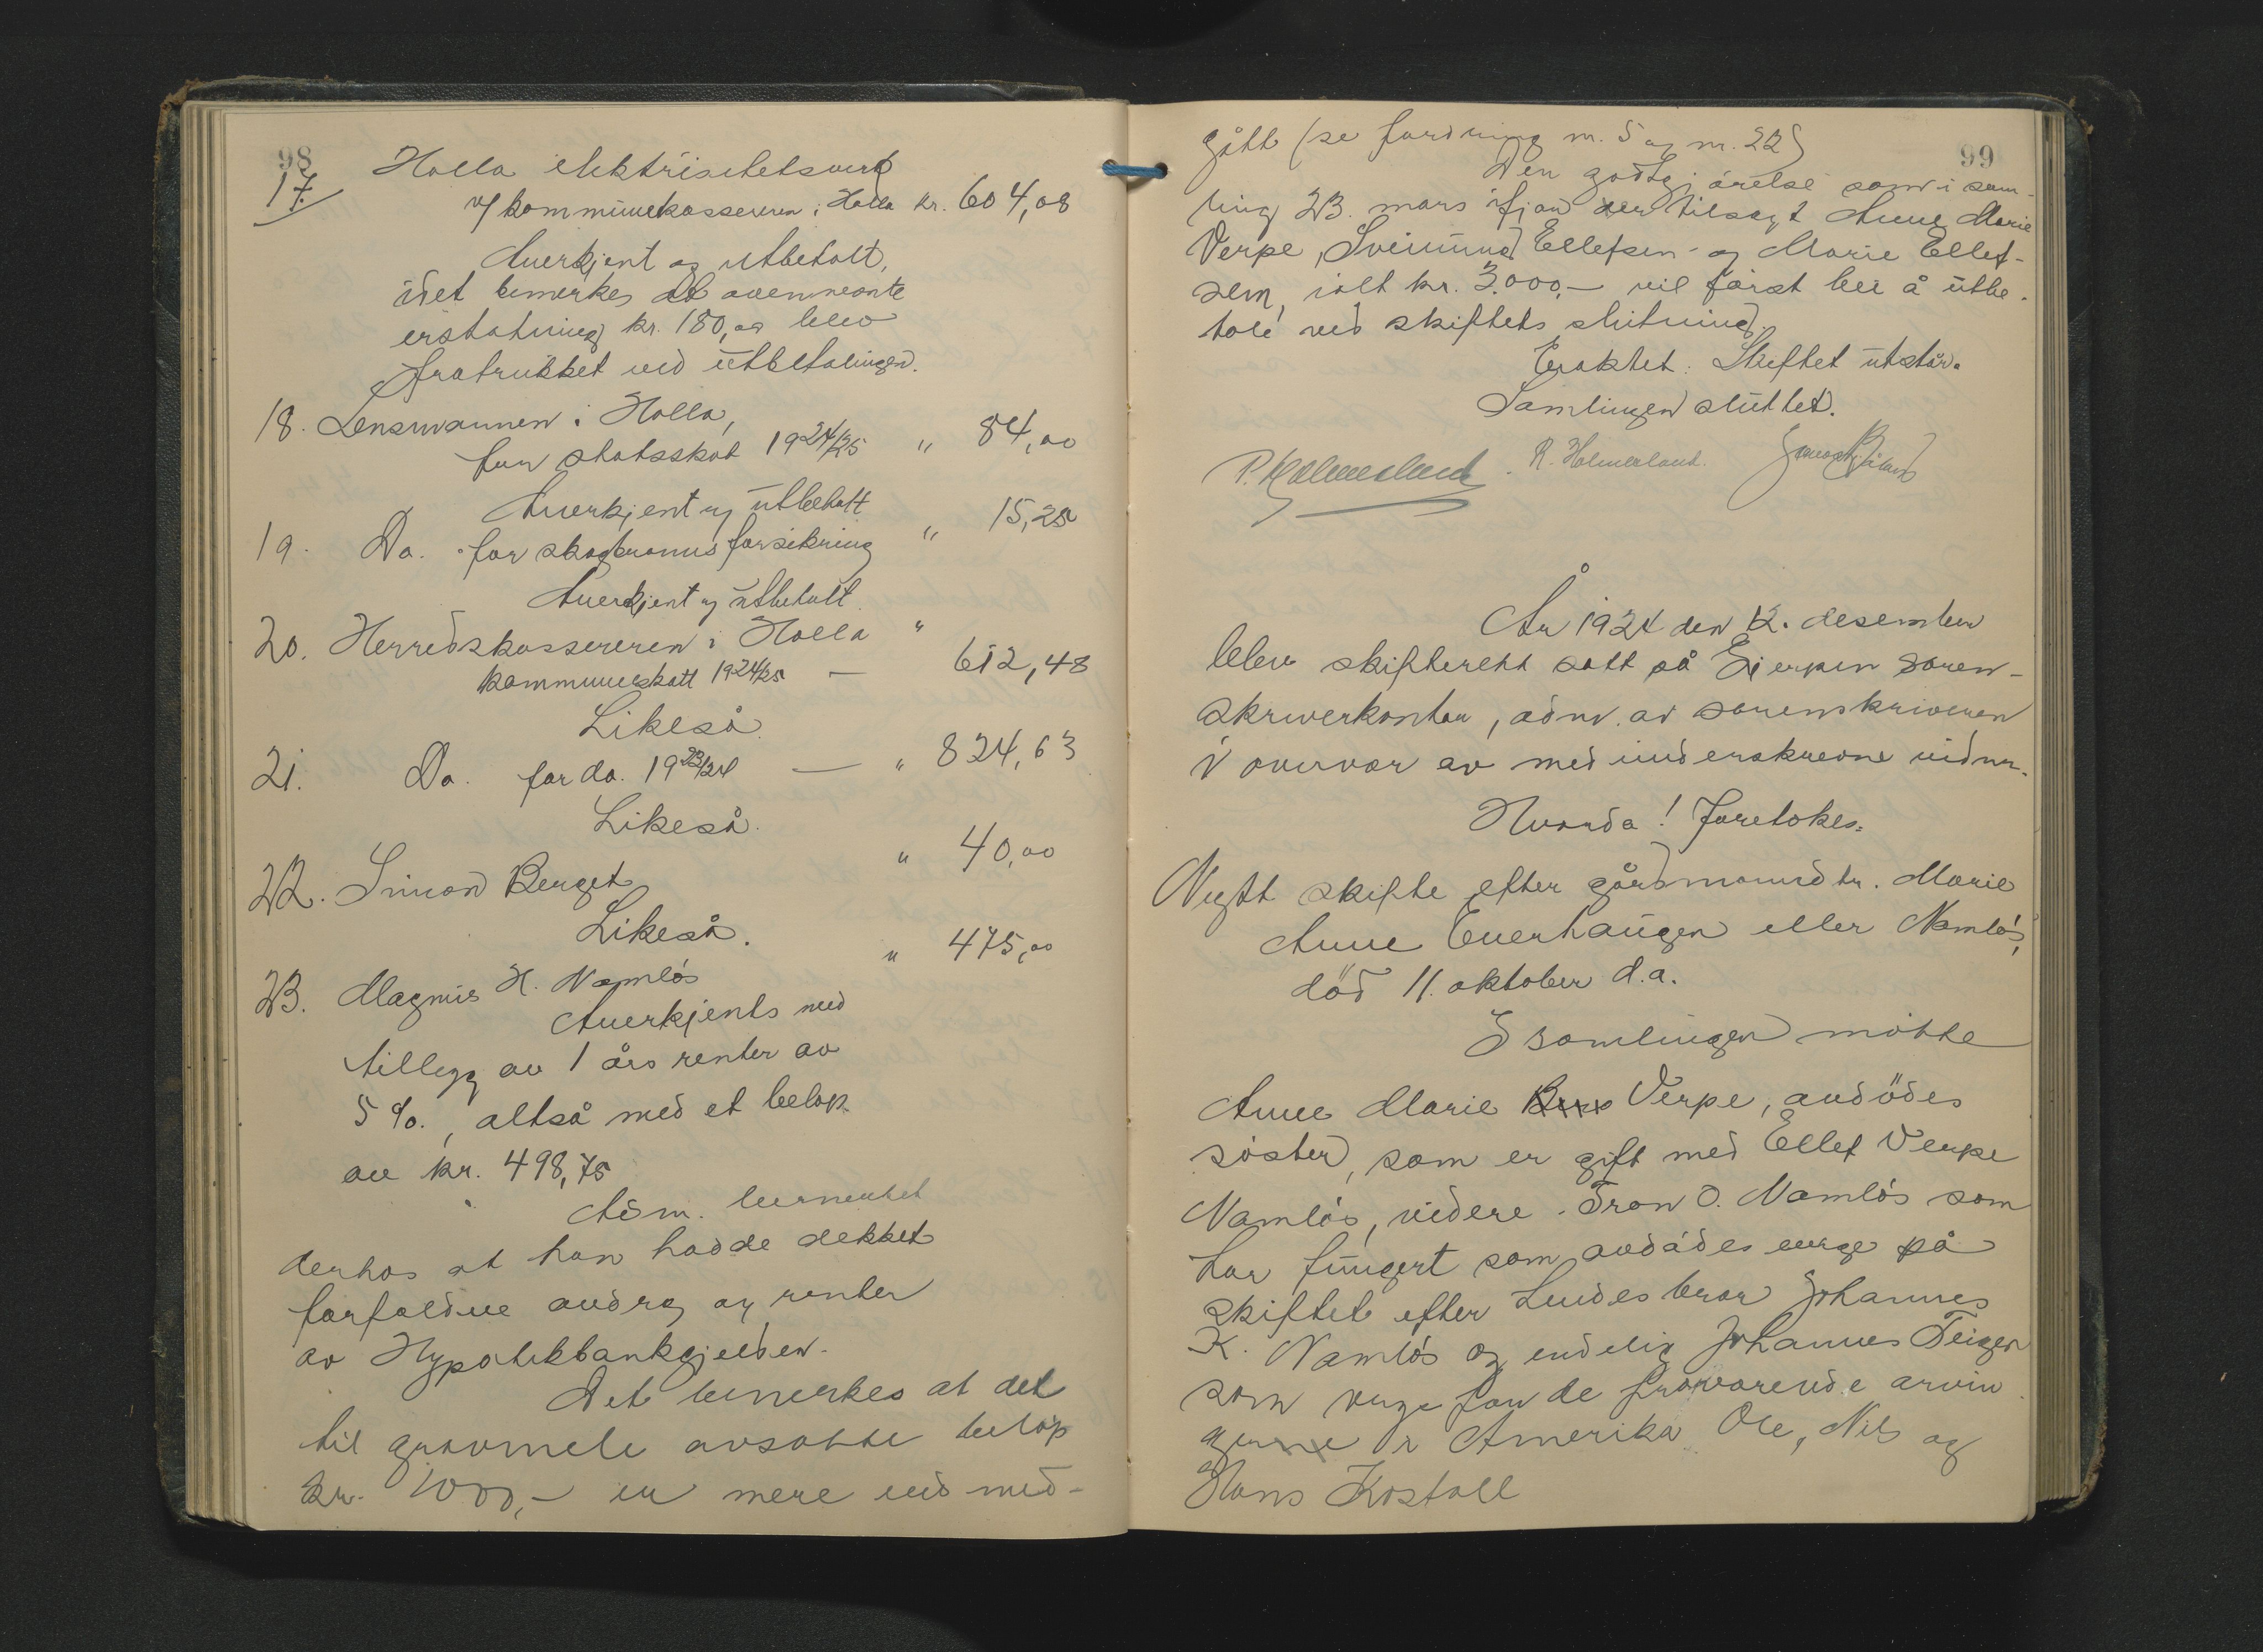 98
17. Holla elektrisitetsverk
v/ kommunekassereren i Holla kr. 604,08
Anerkjent og utbetalt,
idet bemerkes at ovennevnte
erstatning kr. 180,00 blev
fratrukket ved utbetalingen.
18. Lensmannen i Holla,
for statsskat 1924/25 " 84,00
Anerkjent og utbetalt
19. Do. for skogbrannsforsikring " 15,25
Anerkjent og utbetalt.
20. Herredskassereren i Holla "
kommuneskatt 1924/25 — 612,48
Likeså.
21. Do. for do. 1923/24 — " 824,63
Likeså.
22. Simon Berget " 40,00
Likeså.
23. Magnus H. Namløs " 475,00
Anerkjents med
tillegg av 1 års renter av
5 %., altså med et beløp
av kr. 498,75
Adm. bemerket
derhos at han hadde dekket
forfaldne avdrag og renter
av Hypotekbankgjelden.
Det bemerkes at det
til gravmele avsatte beløp
kr. 1000,- er mere end med-
99
gått (se fordring nr. 5 og nr. 22)
Den godtgjørelse som i sam-
ling 23. mars ifjor er tilsagt Anne Marie
Verpe, Sveinung Ellefsen og Marie Ellef-
sen, ialt kr. 3.000,- vil først bli å utbe-
tale ved skiftets slutning.
Eraktet: Skiftet utstår.
Samlingen sluttet.
P. Holmesland. R. Holmesland.
År 1924 den 12. desember
blev skifterett satt på Gjerpen soren-
skriverkontor, adm. av sorenskriveren
i overvær av medunderskrevne vidner.
Hvorda! Foretokes:
Nytt skifte efter gårdmanndtr. Marie
Anne Everhaugen eller Namløs,
død 11. oktober d.a.
I samlingen møtte
Anne Marie Verpe, avdødes
søster, som er gift med Ellef Verpe
Namløs, videre Tron O. Namløs som
har fungert som avdødes verge på
skiftet efter hendes bror Johannes
K. Namløs og endelig Johannes Teigen
som verge for de fraværende arvin-
gerne i Amerika Ole, Nils og
Hans Kostoll